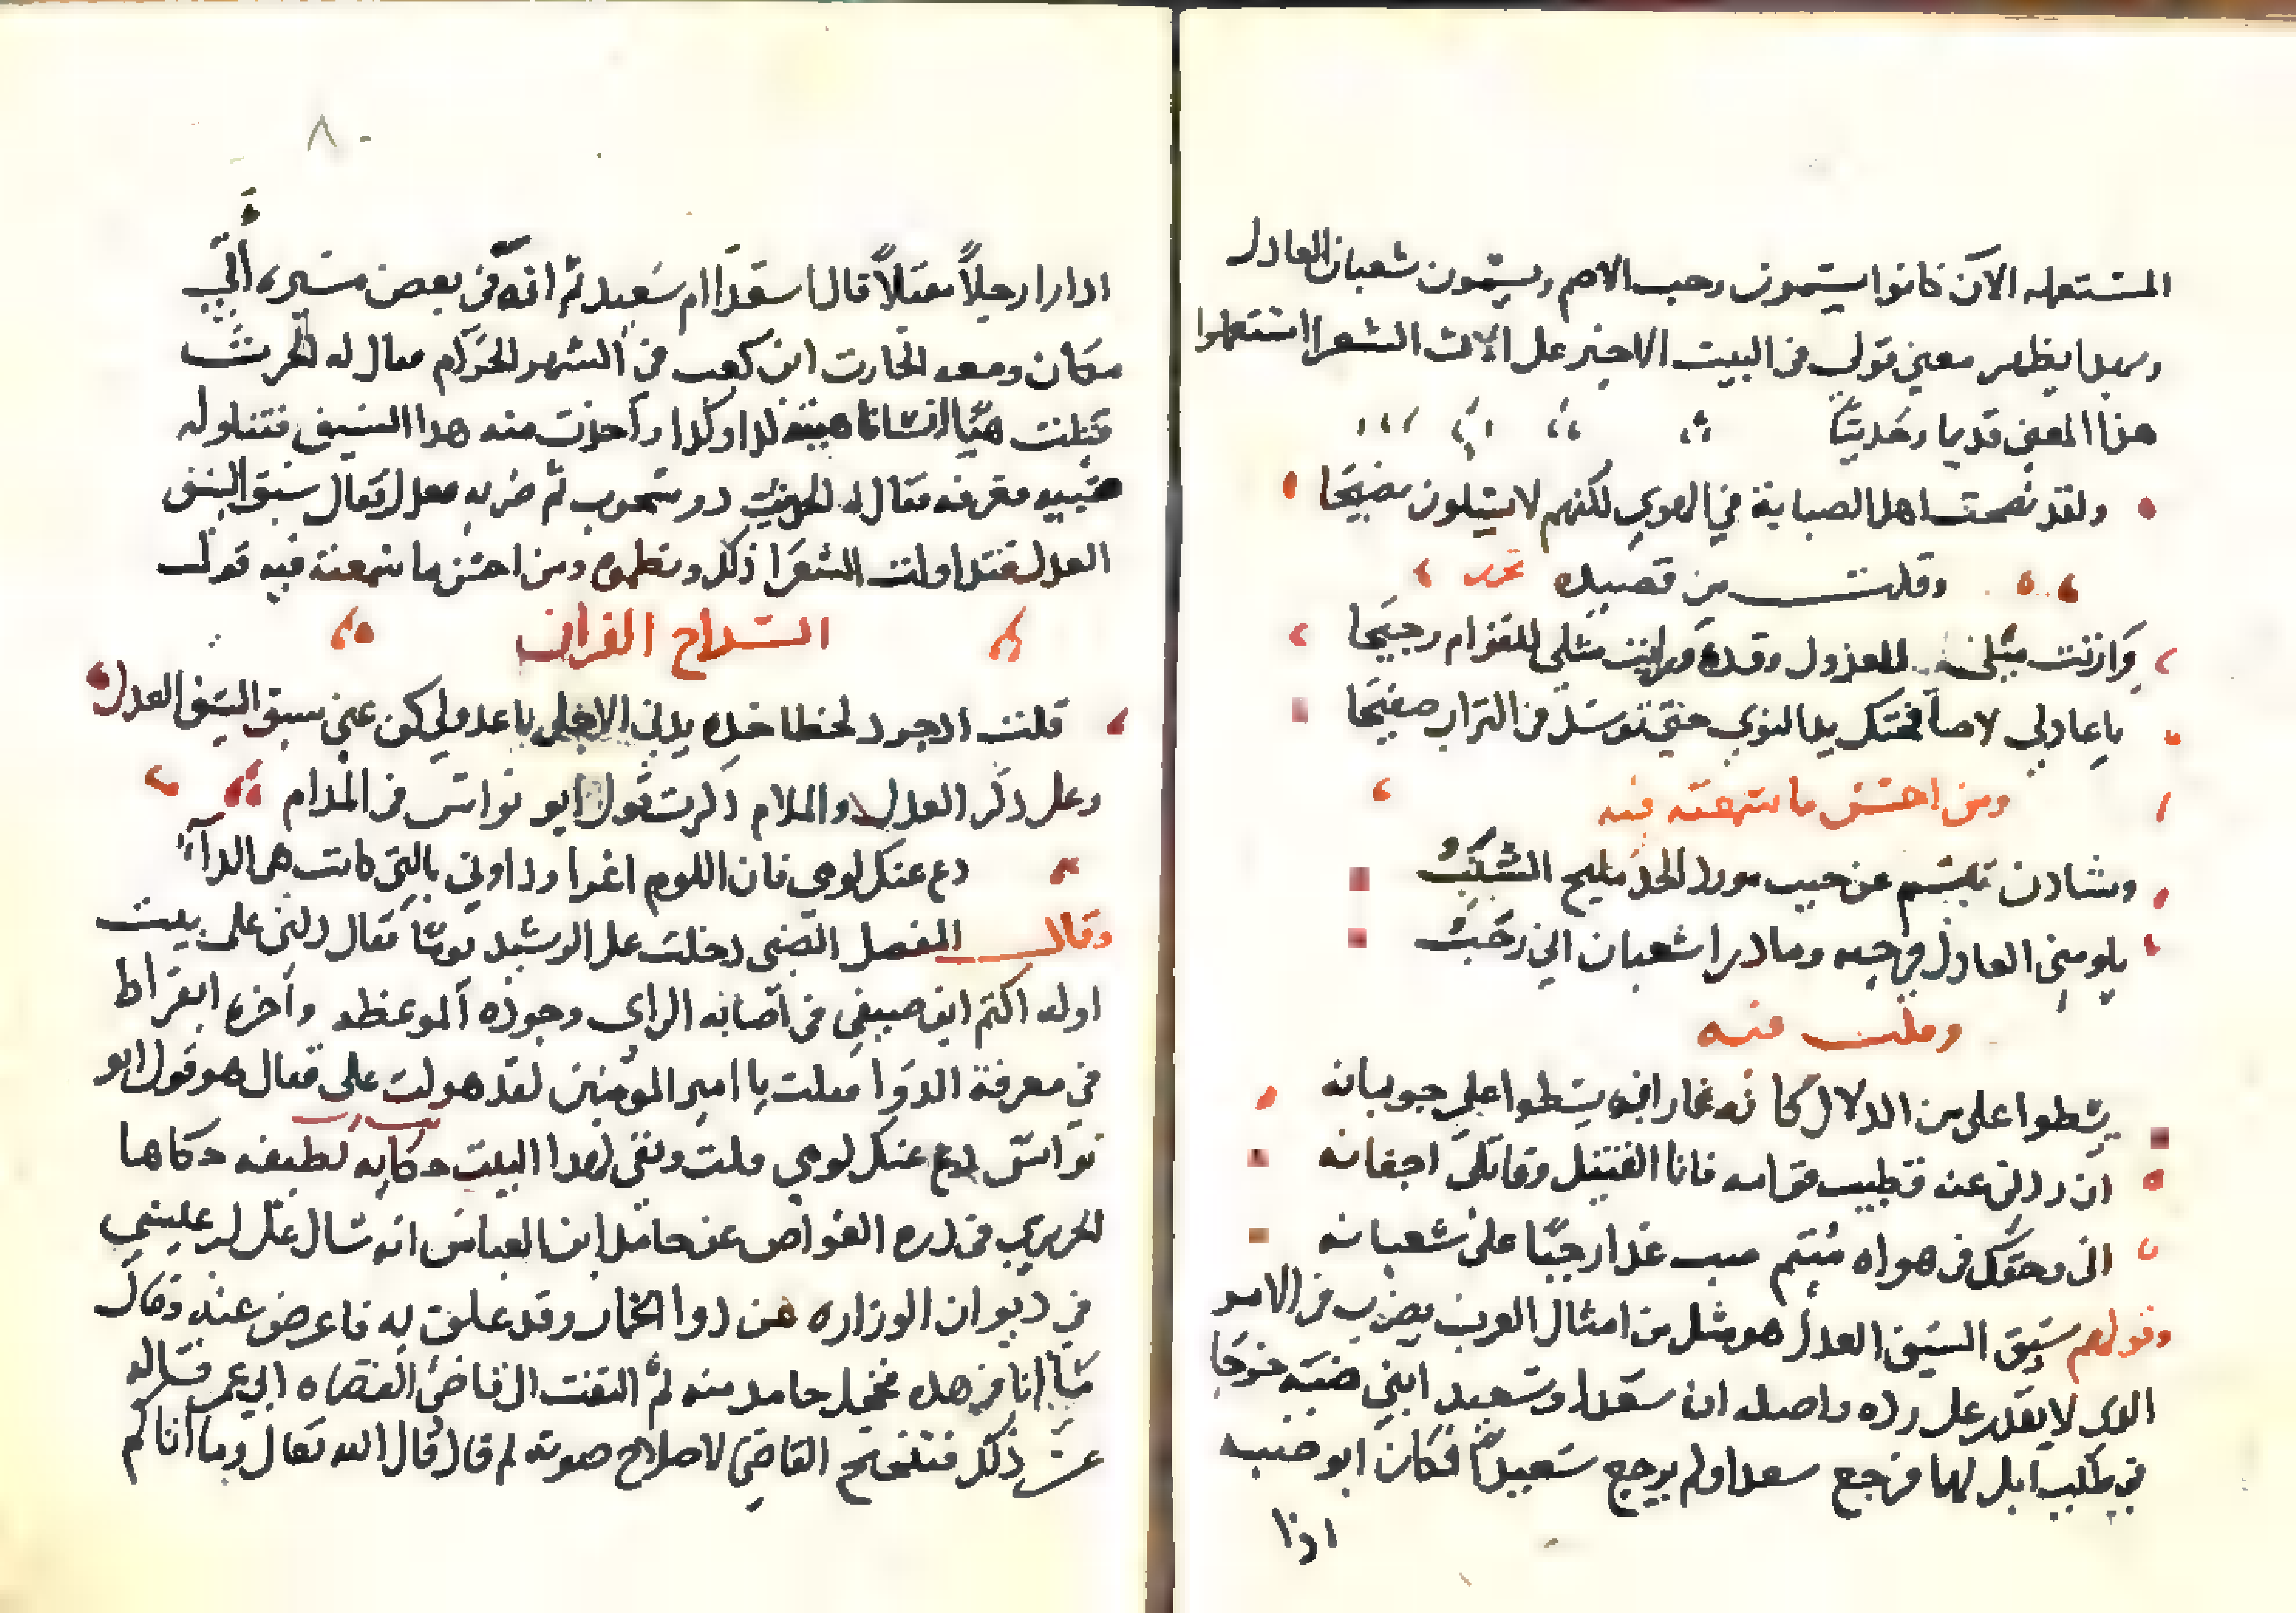 المستعمله الآن كانوا يسمون رجب الاصم ويسمون شعبان العادل
وبهدا يظهر معنى قولي في البيت الاخير على ان الشعرا استعملوا
هذا المعنى قديما وحديثًا
ولقد نصحت اهل الصبابة في الهوي لكنهم لا يقبلون نصيحا
وقلت من قصيده
وازنت مثلي للعزول وقده فرايت مثلي للغرام رجيحا
يا عادلي لا صافحتك يد النوي حتى توسد في التراب صفيحا
ومن احسن ما سمعته فيه
وشادن مبتسم عن حبب مورد الخد مليح الشنب
يلومني العادل في حبه وما درا شعبان اني رجب
وقلت فيه
يسطوا على من الدلال كانه نمار انه يسطوا على جوبانه
ان ردني عنه قطيب قوامه فانا القتيل وقاتلي اجفانه
اني وحقك في هواه متيم صب غدا رجبًا على شعبانه
وقولهم سبق السيف العدل هو مثل من امثال العرب يضرب في الامر
الدي لا يقدر على رده واصله ان سعدا وسعيد ابني ضبه خرجا
في طلب ابل لهما فرجع سعدا ولم يرجع سعيدًا فكان ابو ضبه
اذا
٨٠
ادا را رجلاً مقبلاً قال اسعدًا ام سَعيد ثم انه في بعض مسيره أتي
مكان ومعه الحارت ابن كعب في الشهر الحرام فقال له الحرث
قتلت هنا انسانا هيته كدا وكدا واخذت منه هدا السيف فتناوله
ضبه فعرفه فقال له الحديث دو شجون ثم ضربه فعدل فقال سبق السيف
العدل فتداولت الشعرا ذلك ونظموه ومن احسن ما سمعته فيه قول
السراج الوراق
قلت اد جرد لحظا حده يدني الاجل يا عدولي كف عني سبق السيف العدل
وعلى دكر العدل والملام دكرت قول ابو نواس في المدام
دع عنك لومي فان اللوم اغرا وداوني بالتي كانت هي الدآء
وقال المفضل الضبي دخلت على الرشيد يومًا فقال دلني على بيت
اوله اكتم ابن صيفي في اصابه الراي وجوده الموعظه وآخره ابقراط
في معرفة الدوا فقلت يا امير المومنين لقد هولت علي فقال هو قول ابو
نواس دع عنك لومي قلت وبقي لهدا البيت حكايه لطيفه حكاها
الحريري في دره الغواص عن حامد ابن العباس انه سال علي ابن عيسي
في ديوان الوزاره عن دوا الخمار وقد علق به فاعرض عنه وقال
ما انا في هده فخجل حامد منه ثم التفت الى قاضي القضاه ابي عمر فساله
عن ذلك فتنحنح القاضي لاصلاح صوته ثم قال قال الله تعالى وما اتاكم